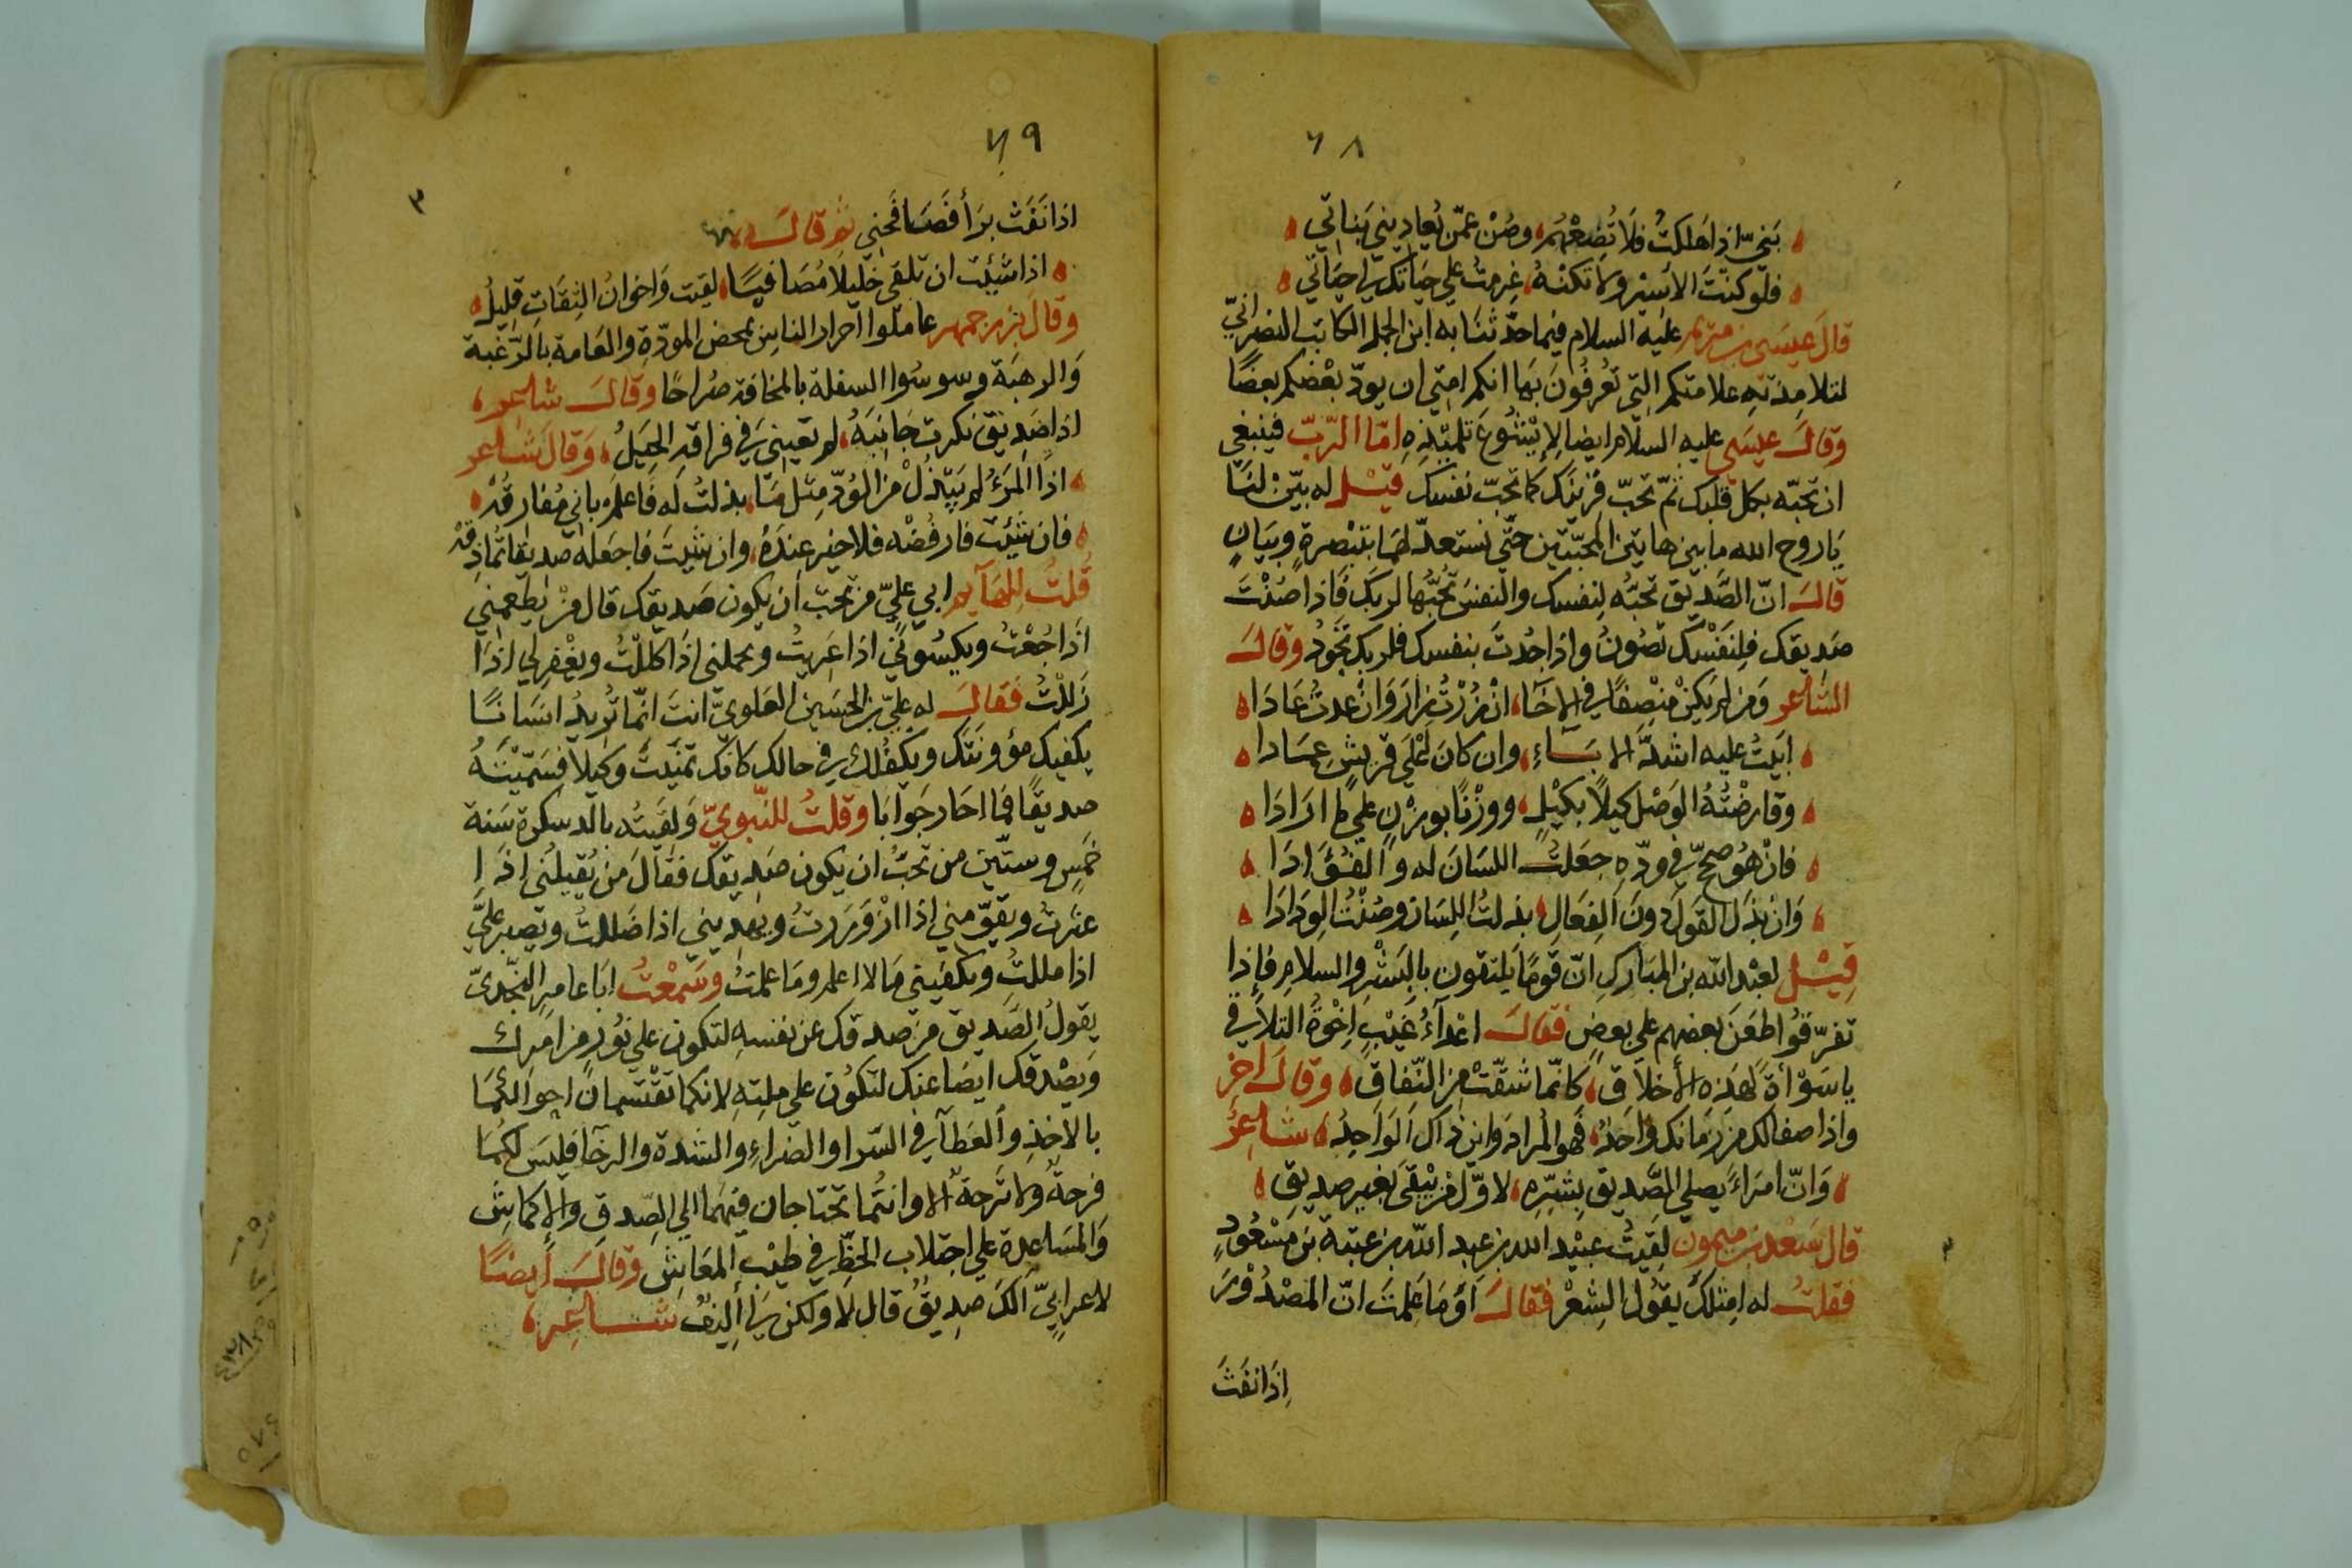 ٦٨
بَنيّ اذا هلكتُ فلا تُضِعْهُم وصُنْ عمّن يُعاديني بَناتي
فلو كنتَ الاسير ولا تكنْهُ عرمتُ علي حياتك يا حياتي
قالَ عيسَى بن مريم عليه السلام فيما حدّثنَا به ابن الجمل الكاتب النصرانيّ
لتلامذته علامتكم التي تعْرفُونَ بهَا انكم امتي ان يودّ بعْضكم بعضًا
وقالَ عيسَى عليه السلام ايضا لإيْشُوع تلميذه امّا الرّبّ فينبغي
ان تحبّه بكل قلبك ثمّ تحبّ قرينك كما تحبّ نفسك قيْل له بيّنْ لنَا
يَا روح الله ما بين هاتين المحبّتين حتّي نستعدّ لهَا بتبْصرةٍ وبيَانٍ
قالَ انّ الصَّديق تحبّه لنفسك والنفسَ تحُبّها لربكَ فاذا صُنْتَ
صَديقك فلنَفْسك تصُونُ واذا جُدتَ بنفسك فلربك تجُودُ وقالَ
الشاعر وَمن لم يكنْ منصِفًا في الاخَآ، انْ زُرْتُ زارَ وَانْ عدتُ عَادَا
ابَيتُ عليه اشدَّ الابَآءِ، وان كانَ اعْلَي قريشٍ عِمَادا
وقارضْتُهُ الوَصْلَ كيلاً بكيْلٍ، ووزْنًا بوزْنٍ علي ما ارَادَا
فانْ هُوَ صحّح في ودّهِ جعَلتُ اللسَانَ له وَالفؤَادَا
وَانْ بَذَلَ القَولَ دونَ الفِعَالِ، بذلتُ اللِسَانَ وصُنْتُ الوِدَادَا
قيْل لعَبْد الله بن المبَارك انّ قومًا يلتقون بالبشْر والسلام فإذا
تفرّقوُا طعَنَ بعضهم علي بعضٍ فقالَ اعْدآءُ غيْبٍ اخْوَةُ التلاَقي
يا سَوْأةً لهَذه الأخلاَق، كانّما شقّتْ من النّفاق، وقالَ اخر
واذا صفا لك من زمانك واحدٌ، فهو المُراد وَاين ذاك الوَاحِدُ، شاعر
وَانّ امرَاءً يصلي الصَّديق بِشَرّه، لاوّل من يبْقَي بغير صديقِ
قال سَعْد بن ميمون لقيتُ عبَيْد الله بن عبد الله بن عتبة بن مَسْعُودٍ
فقلتُ له امثلكَ يقوُل الشعْر فقالَ اوَمَا عَلِمتَ انّ المَصْدُوْرَ
اِذَا نفَثَ
٦٩
اذا نَفَثَ بَرَأَ ثم قالَ
اذا شئيتَ ان تلقَي خَليلا مُصَافيًا، لقيتَ وَاخوانُ الثقَاتِ قليلُ
وقالَ بزرجمهر عاملوا احرار الناس بمحض المودّةِ والعَامة بالرّغبة
وَالرهبَة وسوسُوا السفلة بالمخافة صُراحًا وقالَ شاعر
اذا صَديق نكرت جَانبَهُ، لم تعيني في فراقهِ الحِيَلُ، وَقال شاعر
اذا المَرْءُ لم يَبْذُلْ من الوُدّ مِثل مَا، بذلتُ له فاعلمْ باني مُفارقُهْ
فان شئيتَ فارفُضْه فلا خير عندَهُ، وان شئيتَ فاجعله صديقا تماذقُهْ
قلتُ للهَآيم ابي عليّ من تحبّ أن يكون صَديقك قال منْ يطعمني
اذا جُعْتُ ويكسُوني اذا عَريتُ ويحملني اذا كللْتُ ويغْفر لي اذا
زَللْتُ فَقالَ له علي بن الحسَين العَلويّ انتَ انّما تُريدُ انسَانًا
يكفيك مؤونتَك ويكفُلك في حالك كانك تمنّيتَ وكيلا فسَمّيْتَهُ
صديقًا فما احَارَ جَوابَا وقلتُ للنّبويّ وَلقيتُه بالدسكرة سَنة
خمسٍ وستّين من تحبُّ ان يكون صَديقك فقالَ من يُقيلُني اذا
عثرتُ ويقوّمني اذا ازْوَرَرتُ ويهديني اذا ضَللتُ ويصبر عليّ
اذا مللتُ ويكفيني مَا لا اعلم ومَا علمتُ وسَمعْتُ ابَا عامرٍ النجديّ
يقولُ الصَديق من صدقك عن نفسه لتكون علي نوُرٍ من امرك
وَيصْدقك ايضا عنك لتكوُن علي مثلِهِ لانكما تقْتَسمان احوالكُما
بالاخذِ والعَطآ في السّرا والضّراءِ والشدة والرخآ فليسَ لكُما
فرحة ولا ترحةٌ الا وانتُما تحتاجان فيهما الي الصّدق والإكماشِ
وَالمسَاعدة علي اجتلاب الحظّ في طيْب المعَاش وقالَ أيضًا
لاعرابيّ الَكَ صديقٌ قال لا ولكن لي أليفٌ شاعر